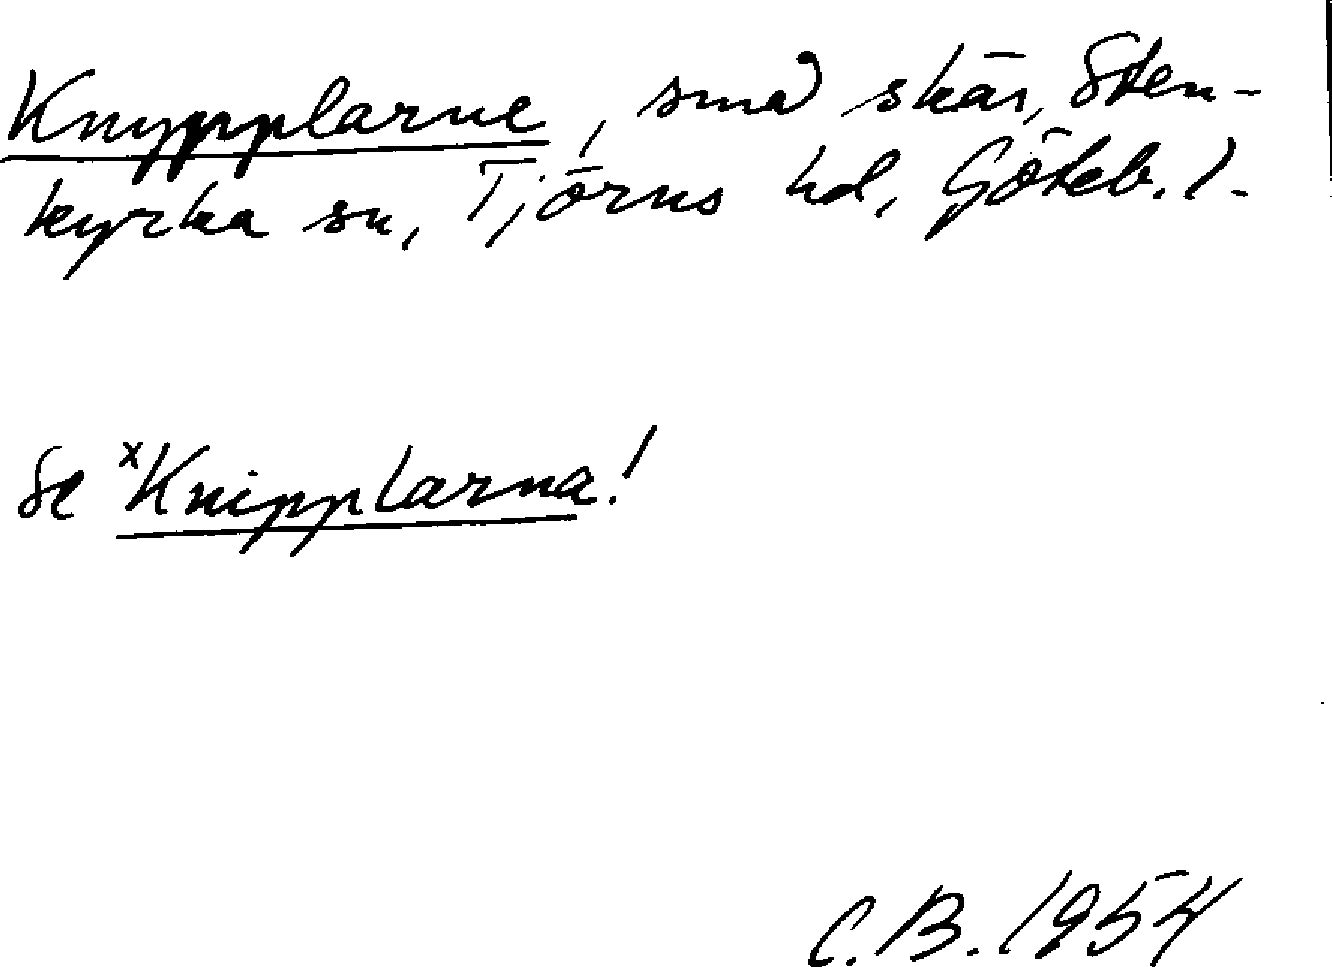 Knypplarne, små skär, Sten-
kyrka sn, Tjörns hd, Göteb. l.
Se ˣKnipplarna!
C.B. 1954